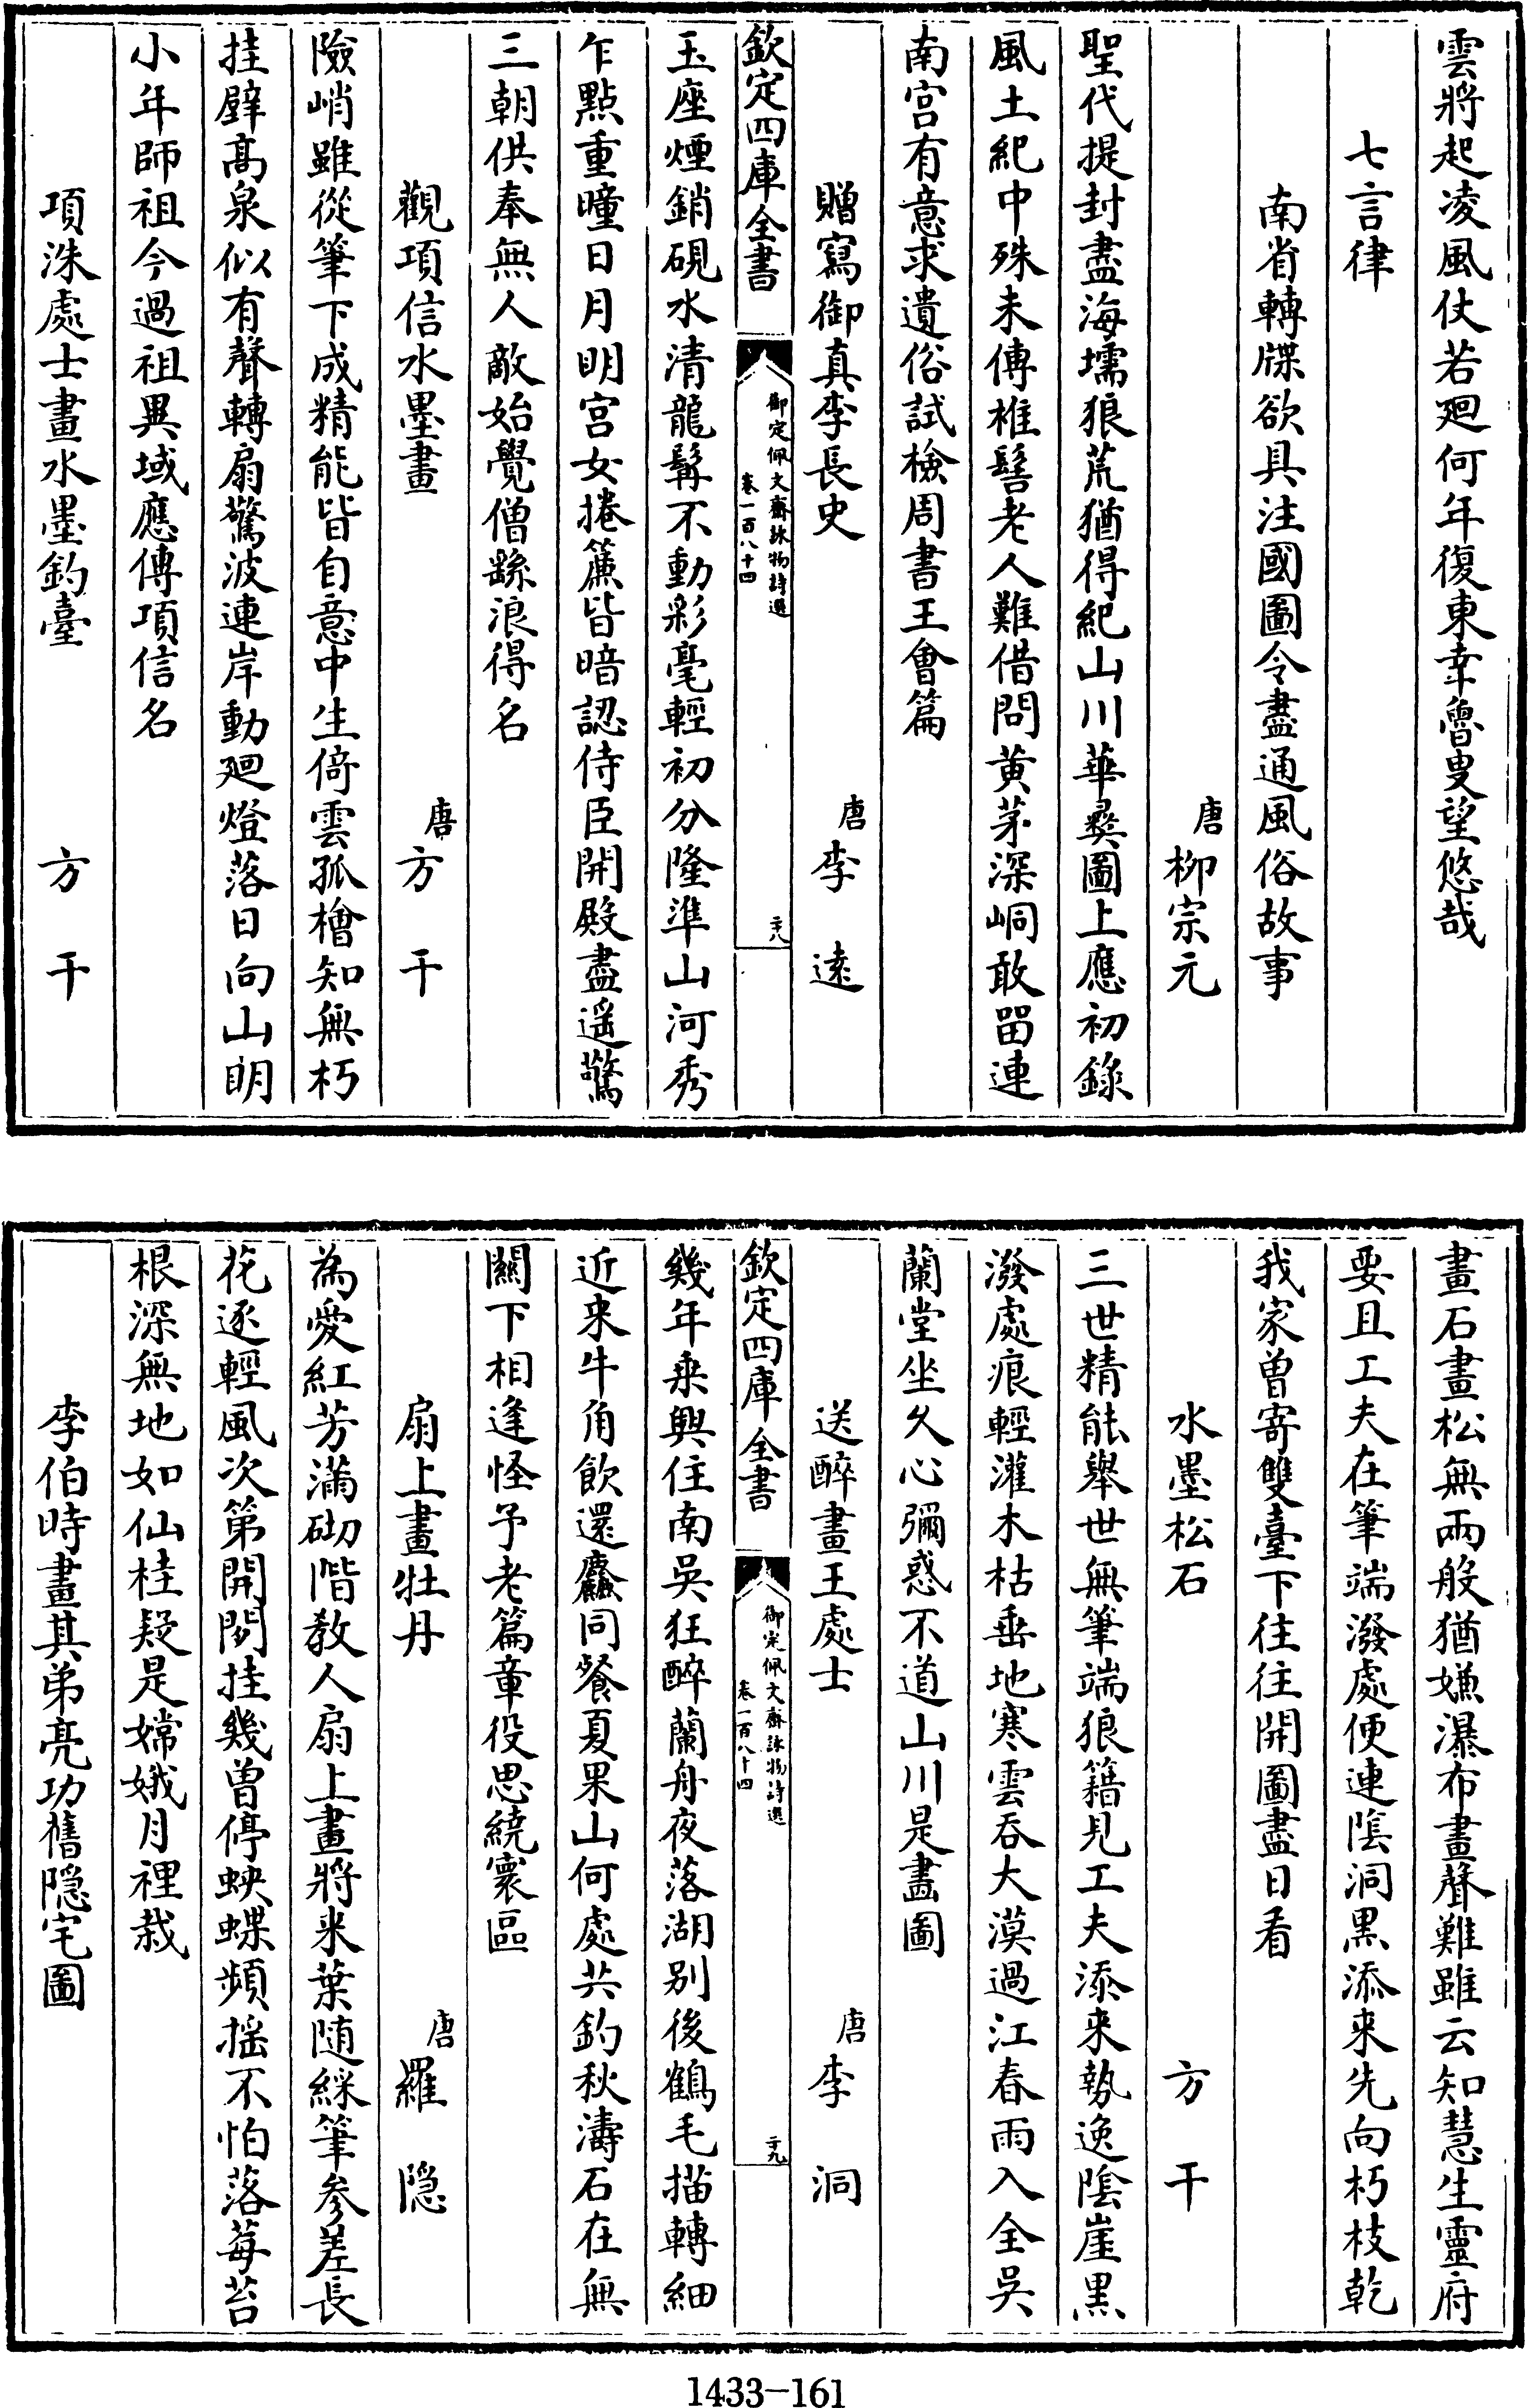 雲將起凌風仗若廻何年復東幸魯叟望悠哉
七言律
南省轉牒欲具注國圖令盡通風俗故事
唐柳宗元
聖代提封盡海壖狼荒猶得紀山川華彝圖上應初錄
風土紀中殊未傳椎髻老人難借問黄茅深峒敢留連
南宫有意求遺俗試檢周書王會篇
贈寫御真李長史 唐李遠
欽定四庫全書
御定佩文齋詠物詩選
卷一百八十四
二十八
玉座煙銷硯水清龍髯不動彩毫輕初分隆準山河秀
乍點重瞳日月明宫女捲簾皆暗認侍臣開殿盡遥驚
三朝供奉無人敵始覺僧繇浪得名
觀項信水墨畫 唐方干
險峭雖從筆下成精能皆自意中生倚雲孤檜知無朽
挂壁髙泉似有聲轉扇驚波連岸動廻燈落日向山明
小年師祖今過祖異域應傳項信名
項洙處士畫水墨釣臺 方干
畫石畫松無兩般猶嫌瀑布畫聲難雖云知慧生靈府
要且工夫在筆端潑處便連隂洞黒添來先向朽枝乾
我家曽寄雙臺下往往開圖盡日看
水墨松石 方干
三世精能舉世無筆端狼籍見工夫添來勢逸隂崖黒
潑處痕輕灌木枯垂地寒雲吞大漠過江春雨入全吳
蘭堂坐久心彌惑不道山川是畫圖
送醉畫王處士 唐李洞
欽定四庫全書
御定佩文齋詠物詩選
卷一百八十四
二十九
幾年乗興住南吳狂醉蘭舟夜落湖别後鶴毛描轉細
近来牛角飲還麤同餐夏果山何處共釣秋濤石在無
闗下相逢怪予老篇章役思繞寰區
扇上畫牡丹 唐羅隠
為愛紅芳滿砌階教人扇上畫將来葉随綵筆参差長
花逐輕風次第開閉挂幾曽停蛺蝶頻揺不怕落莓苔
根深無地如仙桂疑是嫦娥月裡栽
李伯時畫其弟亮功舊隠宅圖
1433-161